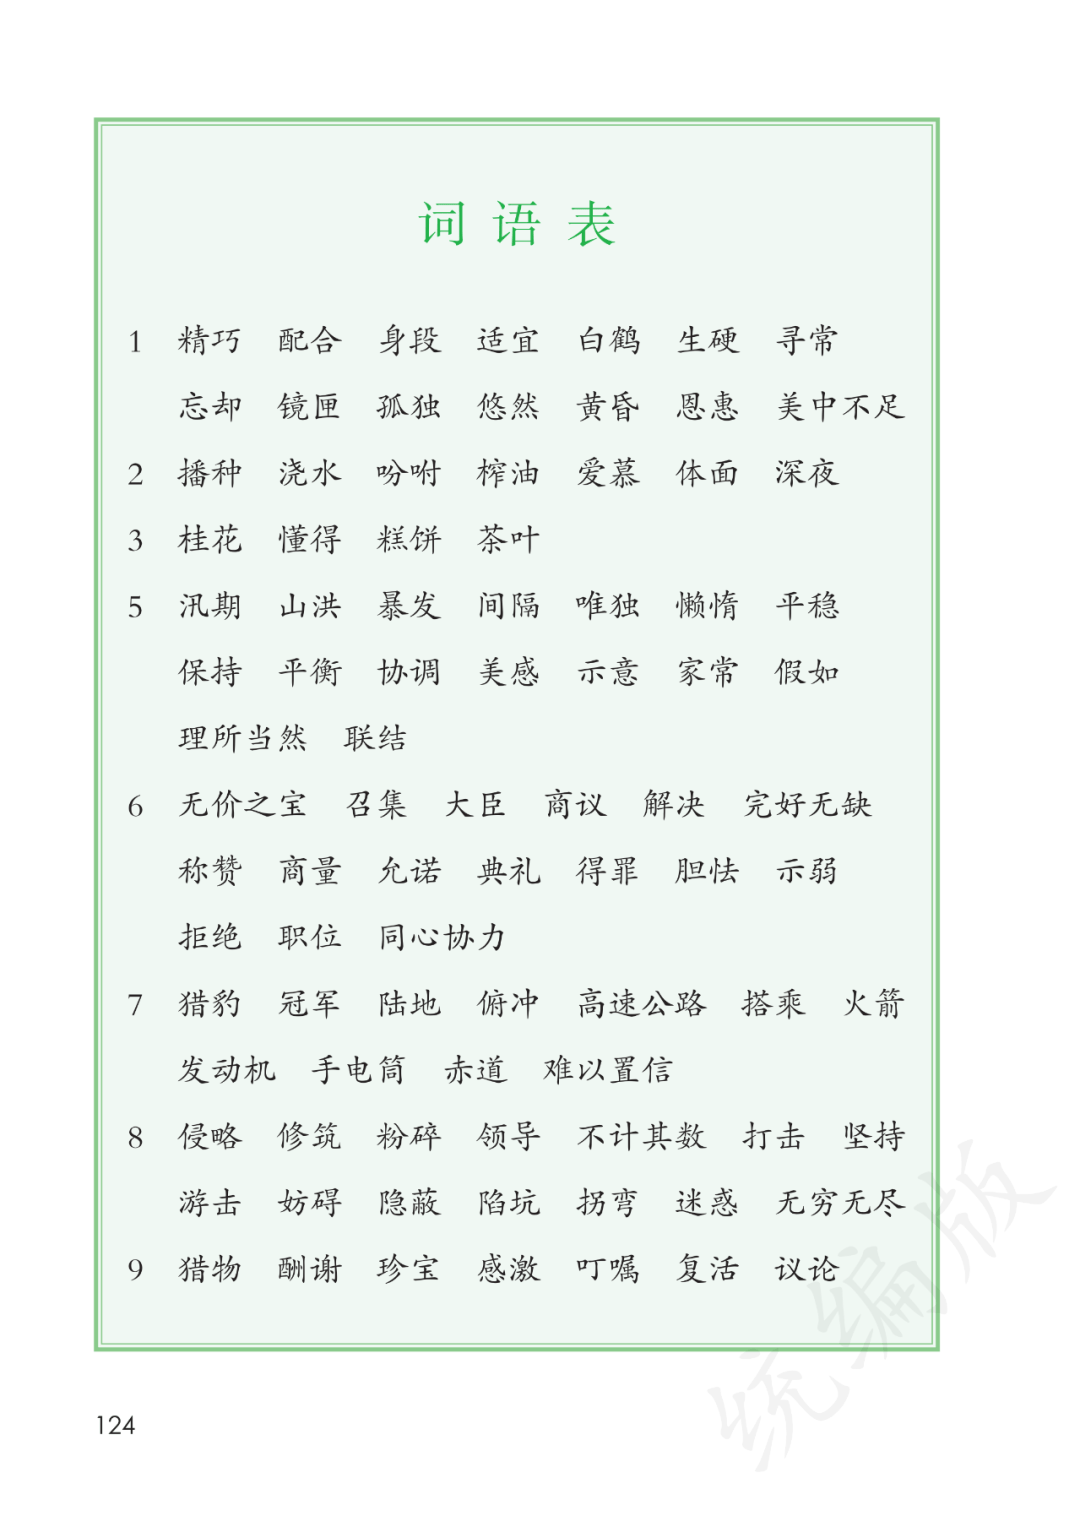 词语表
1 精巧 配合 身段 适宜 白鹤 生硬 寻常
忘却 镜匣 孤独 悠然 黄昏 恩惠 美中不足
2 播种 浇水 吩咐 榨油 爱慕 体面 深夜
3 桂花 懂得 糕饼 茶叶
5 汛期 山洪 暴发 间隔 唯独 懒惰 平稳
保持 平衡 协调 美感 示意 家常 假如
理所当然 联结
6 无价之宝 召集 大臣 商议 解决 完好无缺
称赞 商量 允诺 典礼 得罪 胆怯 示弱
拒绝 职位 同心协力
7 猎豹 冠军 陆地 俯冲 高速公路 搭乘 火箭
发动机 手电筒 赤道 难以置信
8 侵略 修筑 粉碎 领导 不计其数 打击 坚持
游击 妨碍 隐蔽 陷坑 拐弯 迷惑 无穷无尽
9 猎物 酬谢 珍宝 感激 叮嘱 复活 议论
124
统编版